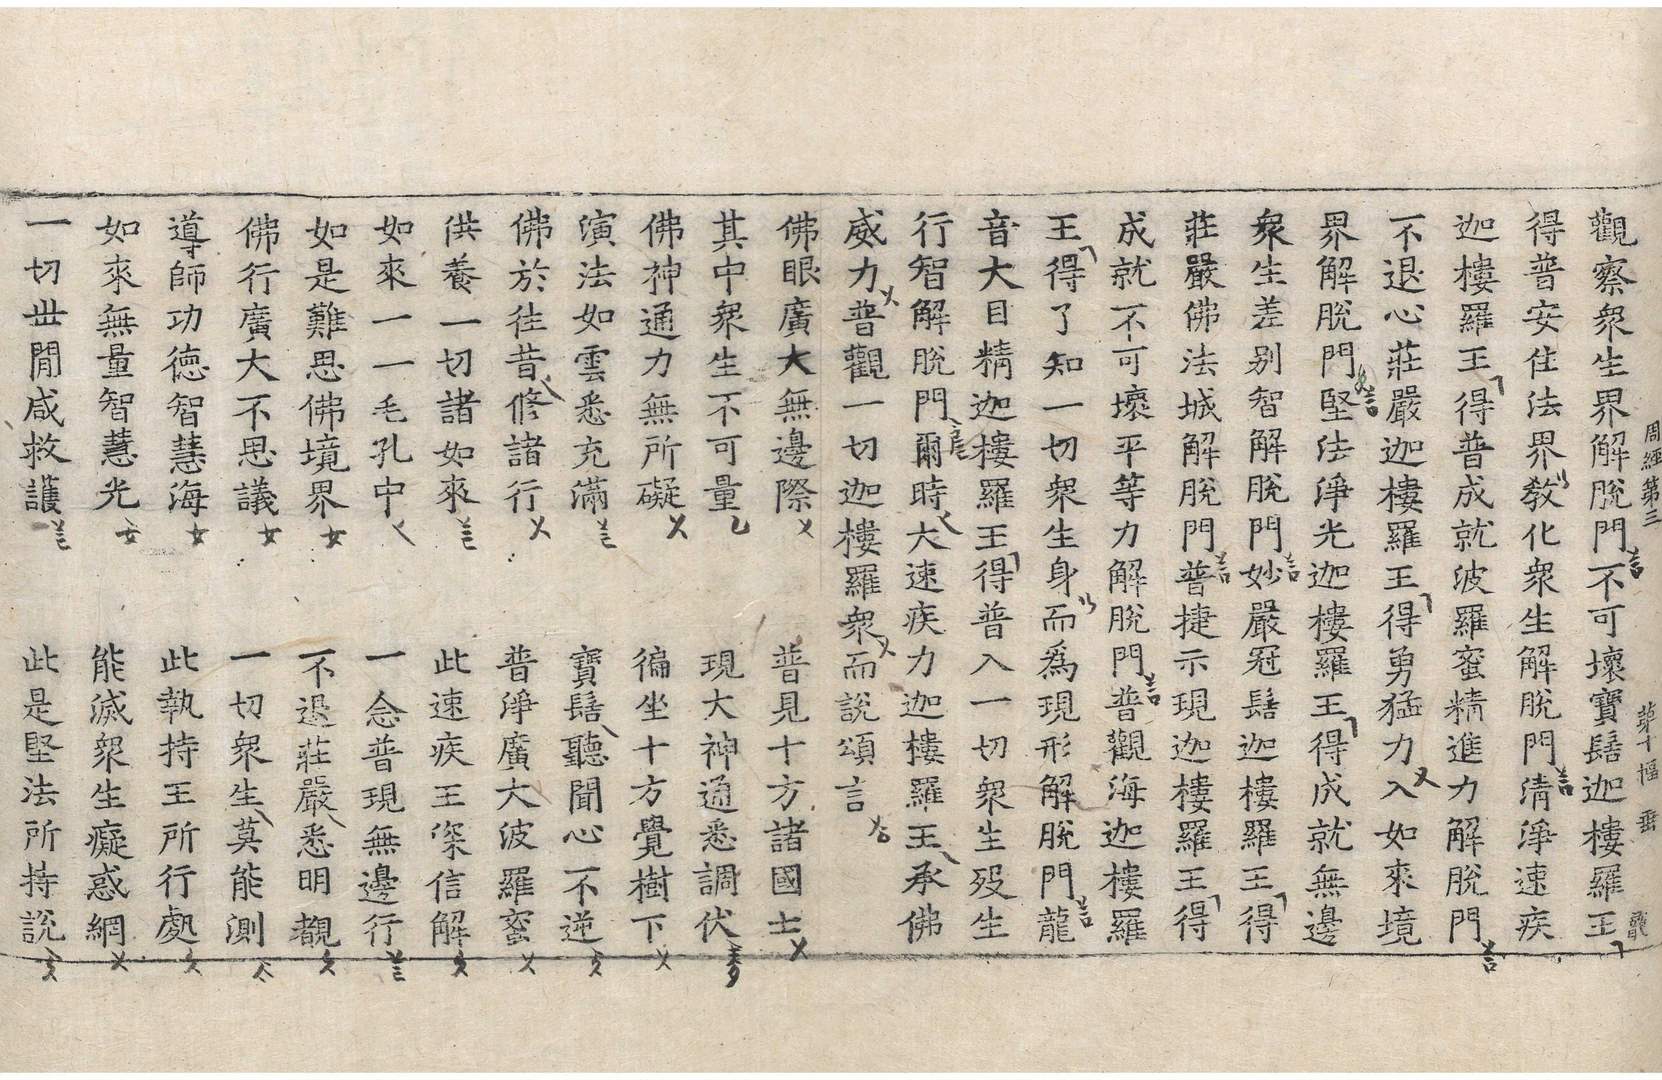 周經第三　第十幅　
觀察衆生界解脫門不可壞寶髻迦樓羅王
得普安住法界教化衆生解脫門清淨速疾
迦樓羅王得普成就波羅蜜精進力解脫門
不退心莊嚴迦樓羅王得勇猛力入如來境
界解脫門堅法淨光迦樓羅王得成就無邊
衆生差别智解脫門妙嚴冠髻迦樓羅王得
莊嚴佛法城解脫門普捷示現迦樓羅王得
成就不可壞平等力解脫門普觀海迦樓羅
王得了知一切衆生身而爲現形解脫門龍
音大目精迦樓羅王得普入一切衆生歿生
行智解脫門爾時大速疾力迦樓羅王承佛
威力普觀一切迦樓羅衆而說頌言
佛眼廣大無邊際　普見十方諸國土
其中衆生不可量　現大神通悉調伏
佛神通力無所礙　徧坐十方覺樹下
演法如雲悉充滿　寶髻聽聞心不逆
佛於往昔修諸行　普淨廣大波羅蜜
供養一切諸如來　此速疾王深信解
如來一一毛孔中　一念普現無邊行
如是難思佛境界　不退莊嚴悉明覩
佛行廣大不思議　一切衆生莫能測
導師功德智慧海　此執持王所行處
如來無量智慧光　能滅衆生癡惑網
一切世閒咸救護　此是堅法所持說